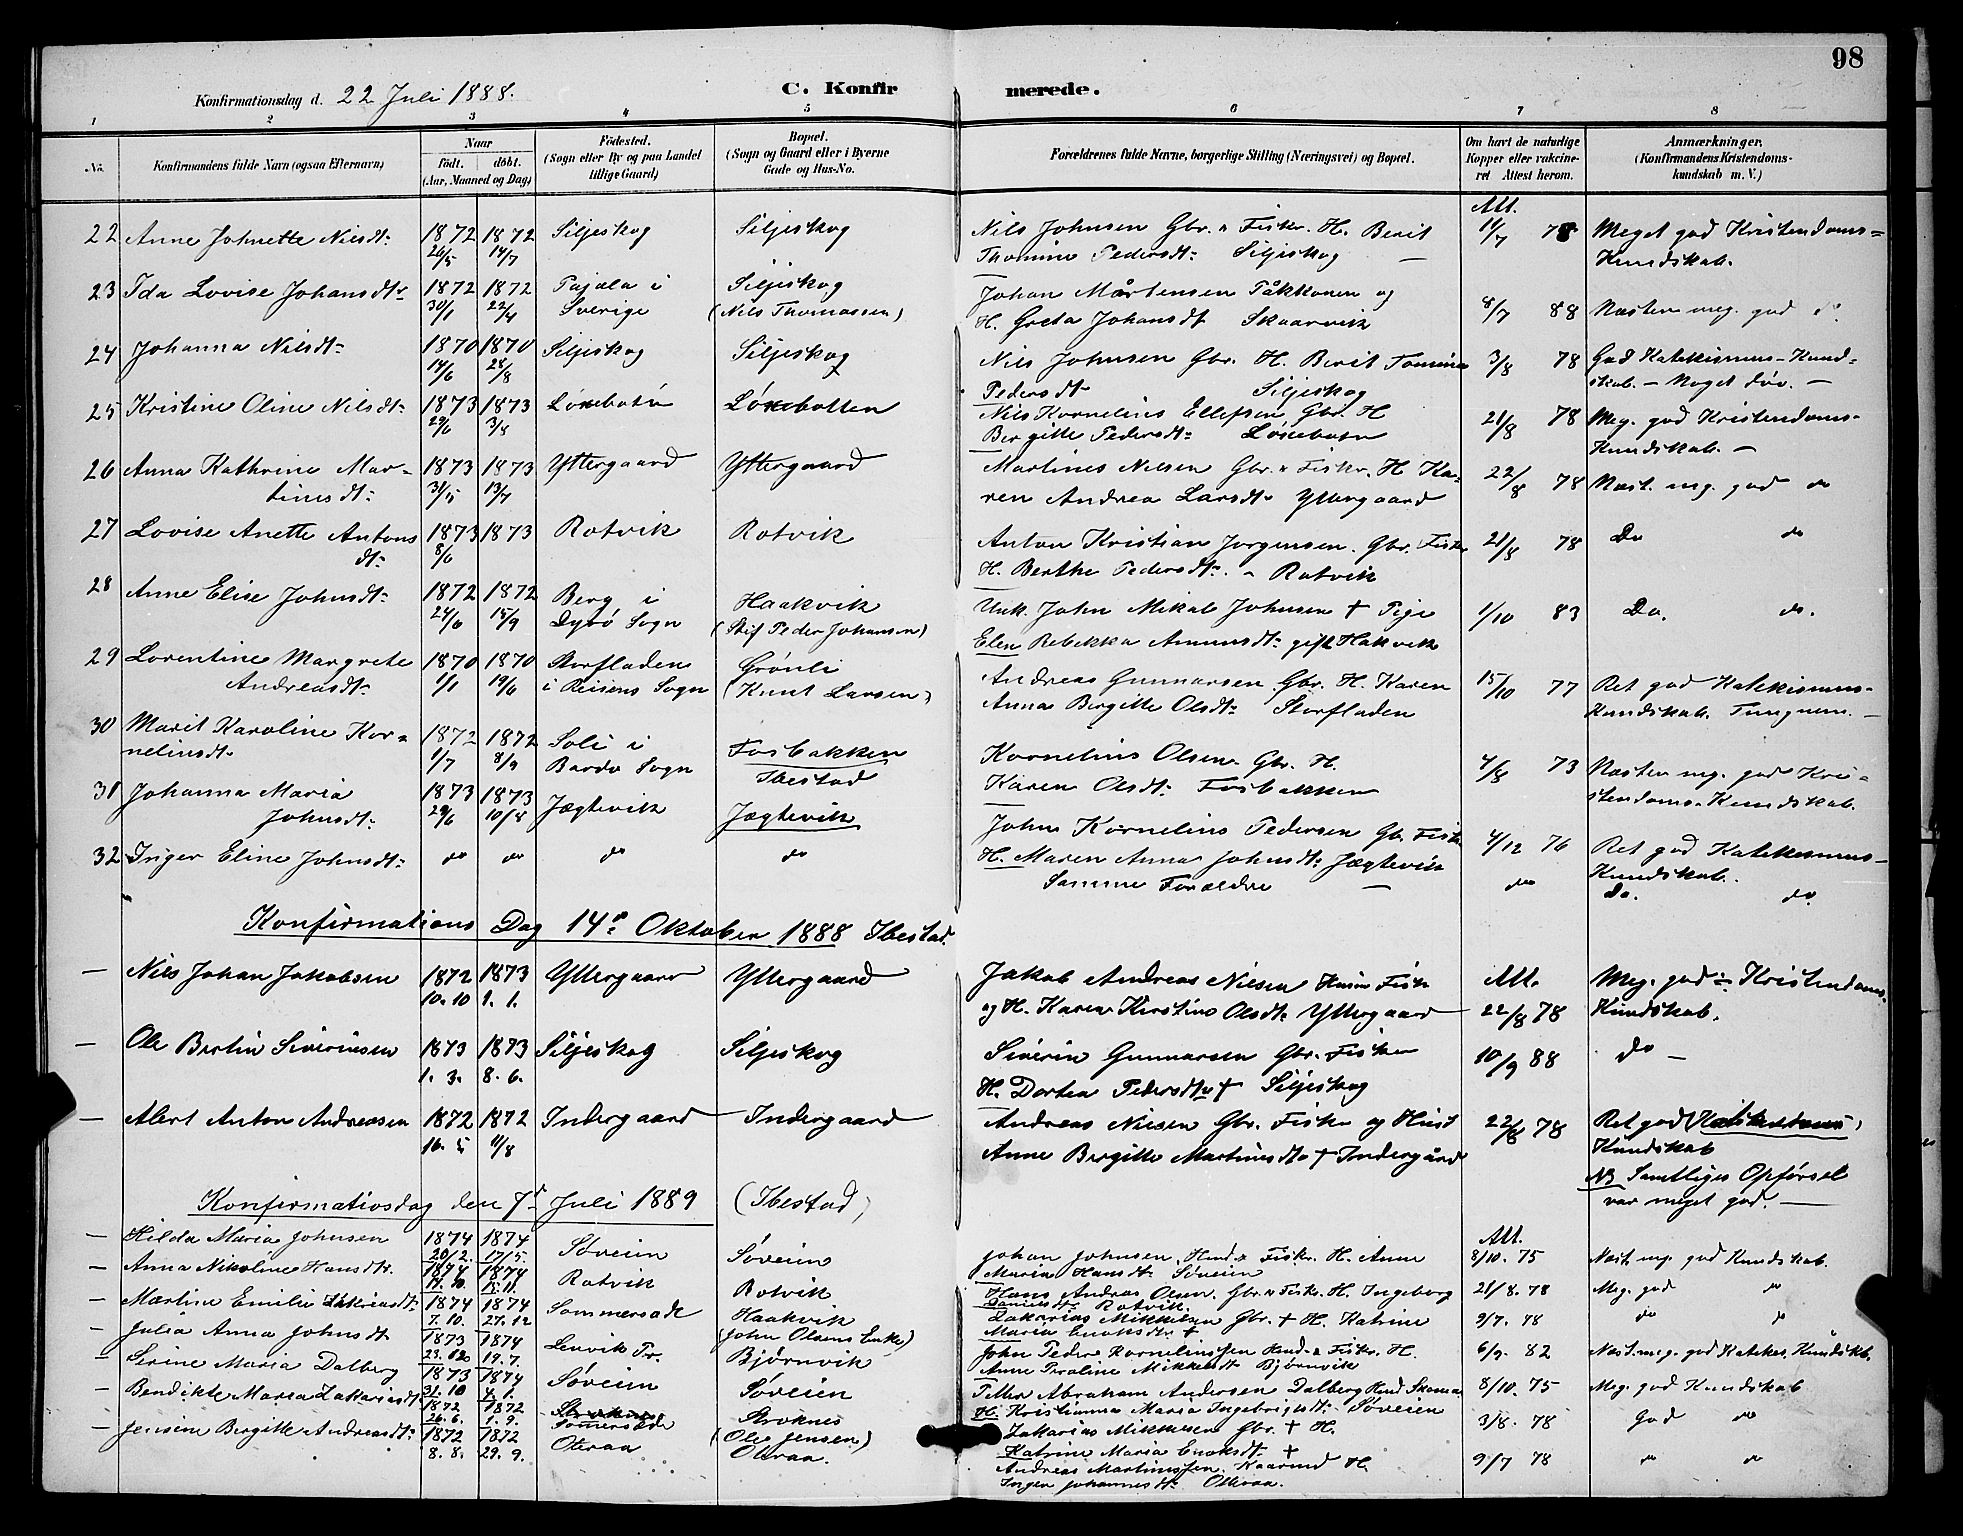 98
Konfirmationsdag d. 22 Juli 1888.
C. Konfirmerede.
1 2 3 4 5 6 7 8
No. Konfirmandens fulde Navn (ogsaa Efternavn) Naar födt. döbt. (Aar, Maaned og Dag) Födested. (Sogn eller By og paa Landet tillige Gaard) Bopæl. (Sogn og Gaard eller i Byerne Gade og Hus-No. Forældrenes fulde Navne, borgerlige Stilling (Næringsvei) og Bopæl. Om havt de naturlige Kopper eller vakcineret Attest herom. Anmærkninger. (Konfirmandens Kristendomskundskab m. V.)
Att.
22 Anne Johnette Nilsdt: 1872 1872 Siljeskog Siljeskog Nils Johnsen Gbr. & Fiskr. H. Berit 14/7 78 Meget god Kristendoms=
26/5 14/7 Thomine Pedersdt: Siljeskog — Kundskab.
23 Ida Lovise Johansdt: 1872 1872 Pajala i Siljeskog Johan Mårtensen Påkkonen og 8/7 88 Næsten meg. god do.
30/1 22/4 Sverige (Nils Thomassen) H. Greta Johansdt Skaarvik
24 Johanna Nilsdt: 1870 1870 Siljeskog Siljeskog Nils Johnsen Gbr. H. Berit Tomine 3/8 78 God Katekismus-Kund=
14/6 28/8 Pedersdt Siljeskog skab. — Noget døv. —
25 Kristine Oline Nilsdt: 1873 1873 Løxebotn Løxebotten Nils Kornelius Ellefsen Gbr. H 21/8 78 Meg. god Kristendoms-
29/6 3/8 Bergitte Pedersdt: Løxebotn Kundskab. —
26 Anna Kathrine Mar- 1873 1873 Yttergaard Yttergaard Martines Nilsen Gbr. & Fiskr. H Ka- 22/8 78 Næst. mg. god do
tinusdt: 31/5 13/7 ren Andrea Larsdt Yttergaard
27 Lovise Anette Antons 1873 1873 Rotvik Rotvik Anton Kristian Jørgensen. Gbr. Fiskr 21/8 78 Do do
dt: 8/6 H. Berthe Pedersdt: - Rotvik
28 Anne Elise Johnsdt: 1872 1872 Berg i Haakvik Unk. John Mikal Johnsen † Pige 1/10 83 Do. do.
24/6 15/9 Dyrø Sogn (Stif Peder Johansen) Elen Rebekka Amundsdt: gift Hakvik
29 Lorentine Margrete 1870 1870 Storfladen Grønli Andreas Gunnarsen Gbr. H. Karen 15/10 77 Ret god Katekismus-
Andreasdt: 1/1 19/6 i Reisens Sogn (Knut Larsen) Anna Birgitte Olsdt: Storfladen Kundskab. Tungnem. —
30 Marit Karoline Kor= 1872 1872 Soli i Fosbakken Kornelius Olsen Gbr. H. 4/8 73 Næsten mg. god Kri-
nelinsdt: 1/7 8/9 Bardo Sogn Ibestad Karen Olsdt: Fosbakken stendoms-Kundskab.
31 Johanna Maria 1873 1873 Jægtevik Jægtevik John Kornelius Pedersen Gbr Fiskr 4/12 76 Ret god Katekesmus-
Johnsdt: 29/6 10/8 H. Maren Anna Johnsdt: Jægtevik Kundskab.
32 Inger Eline Johnsdt: do do do do Samme Forældre — do do. do.
Konfirmations Dag 14de Oktober 1888 Ibestad.
— Nils Johan Jakobsen 1872 1873 Yttergaard Yttergaard Jakob Andreas Nilsen Husm Fisk Att. Meg. god Kristendoms
10. 10 1. 1. og H. Karen Kirstine Olsdt: Yttergaard 22/8 78 Kundskab.
— Ole Bertin Siverinsen 1873 1873 Siljeskog Siljeskog Siverin Gunnarsen Gbr. Fisker 10/9 88 do —
1. 3. 8. 6. H. Dortea Pedersdt † Siljeskog
— Alert Anton Andreasen 1872 1872 Indergaard Indergaard Andreas Nilsen Gbr. Fisker og Hust 22/8 78 Ret god Kristendoms
16. 5 11/8 Anne Bergitte Martinusdt † Indergård Kundskab
NB Samtliges Opførsel
var meget god. —
Konfirmationsdag den 7de Juli 1889 (Ibestad)
— Hilda Maria Johnsen 1874 1874 Søveien Søveien Johan Johnsen, Husmd & Fiskr. H. Anne Att. 8/10. 75 Næst. mg. god Kundskab.
20/2. 17/5. Maria Hansdt: Søveien
— Anna Nikoline Hansdtr. 1874 1874 Rotvik Rotvik Hans Andreas Olsen Gbr & Fiskr. H. Ingeborg 21/8. 78 Meg. god do
17. 10. 15. 11. Danielsdt: Rotvik.
— Martine Emilie Zakriasdt: 1874 1874 Sommersæde Haakvik Zakarias Mikkelsen Gbr. † H. Katrine 9/7. 78 do do
7. 10. 27. 12 (John Olsens Enke) Maria Enoksdtr †
— Julia Anna Johnsdt 1873 1874 Lenvik Pr. Bjørnvik John Peder Kornelinssen Husmd & Fiskr. H. 6/9. 82 Næst. mg. god Katekes. Kundskb.
23. 12 19. 7. Anne Pauline Mikkelsdt Bjørnvik
— Serine Maria Dalberg 1873 1874 Søveien Søveien Petter Abraham Andersen Dalberg Husmd Skomar 8/10. 75 Meg. god Kundskab
31. 10 4. 1. H. Kristianna Maria Ingebrigtsdt: Søveien
— Bendikte Maria Zakariasdt 1872 1872 Sommersæde Stroknes Zakarias Mikkelsen Gbr. † H. 3/8. 78 God do
26. 6. 1. 9. (Ole Jensen) Katrine Maria Enoksdt. †
— Jensine Bergitte Andreasdt: 1872 1872 Oteraa Oteraa. Andreas Martinussen. Kaarmd H. 9/7 78 do do
8. 8. 29. 9. Inger Johannesdt: Oteraa.